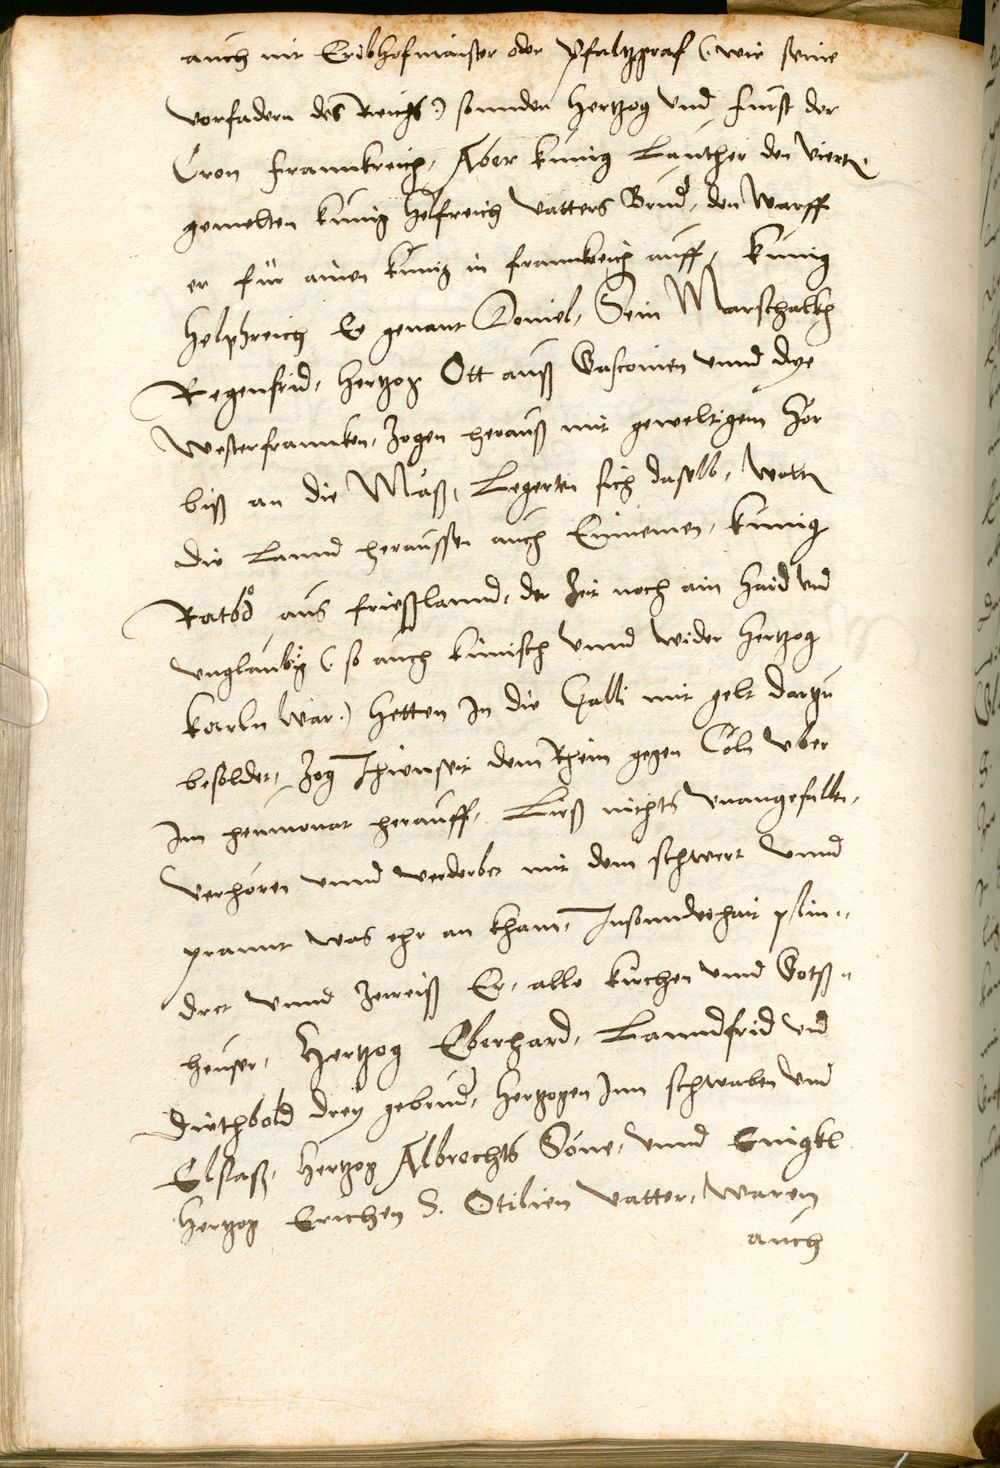 auch nit Eribhofmaister oder Pfaltzgraf (: wie seine
vorfadern des Reichs:) sonnder Hertzog vnd fürst der
Cron Franncreich, Aber künig Lauther den vierten,
gemelten künig Helfreich vatters Brud, den Warff
er für ainen künig in Franncreich auff, künig
Helphreich Ee genant Doniel, Sein Marschalkh
Regenfrid, Hertzog Ott auß Gasconien vnnd dye
Westerfrannken, Zogen herauß mit geweltigem hör
biß an die Maß, Legerten sich daselb, wolten
die Lannd heraussen auch Einnemen, künig
Ratbod aus frießlannd, der Zeit noch ain Haid vnd
vnglaubig (: so auch künisch vnnd wider Hertzog
karln war:) Hetten In die Galli mit gelt darzu
besoldet, Zog Ihenseit dem Rhein gegen Cöln vber
Im heumonat herauff, Ließ nichts vnangefallen,
Verhören vnnd verderbet mit dem schwert vnnd
prannt was ehr an kham, Insonnderhait plin-
dret vnnd Zerreiß Er, alle kirchen vnnd Gotß-
heuser, Hertzog Eberhard, Lanndfrid vnd
Diethbold drey gebrud, Hertzogen Inn schwaben vnd
Elsaß, Hertzog Albrechts Söne, vnnd Enigkl
Hertzog Erichen S. Otilien vatter, waren
auch